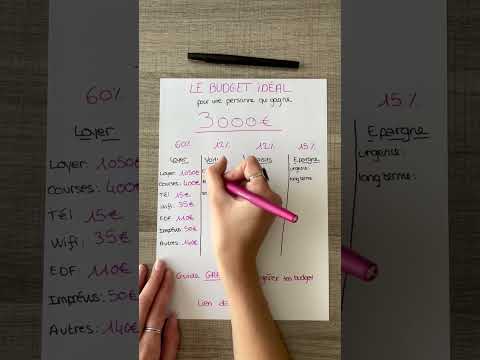 LE BUDGET IDÉAL
pour une personne qui gagne
3000€
60% 12% 12% 15%
Loyer Épargne
Loyer: 1050€ urgence:
Courses: 400€ long terme:
Tél: 15€
Wifi: 35€
EDF: 110€
Imprévus: 50€
Autres: 140€
Guide ton budget
Lien
60%
Loyer
Loyer: 1050€
Courses: 400€
Tél: 15€
Wifi: 35€
EDF: 110€
Imprévus: 50€
Autres: 140€
15%
Épargne
urgence:
long terme: